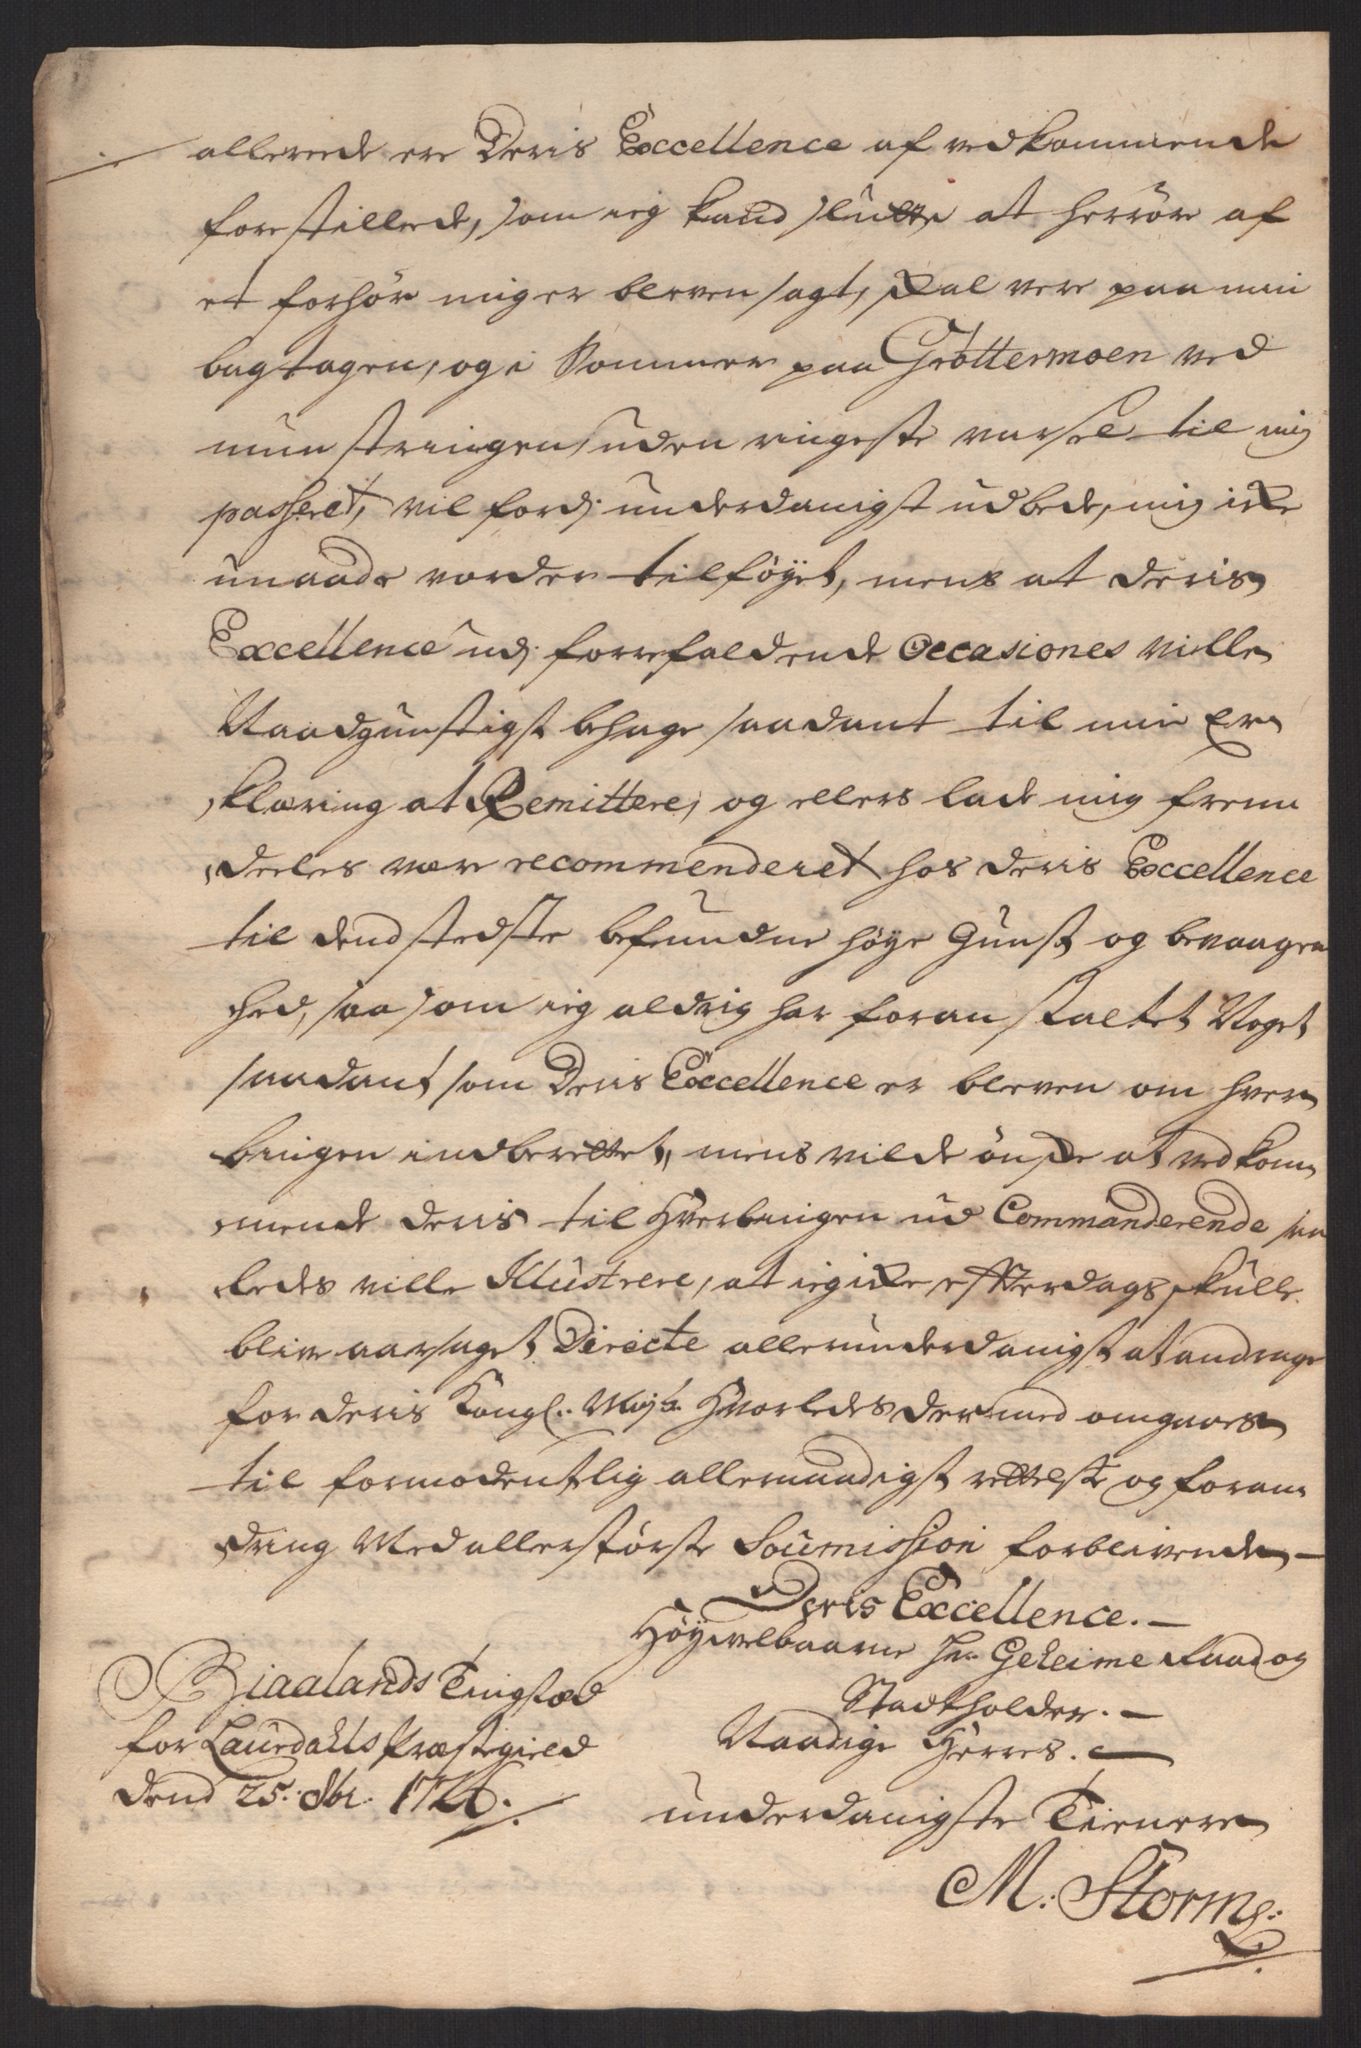 allerede ere Deris Excellence af vedkommende
forestillede, som ieg kand slutte at herröre af
et forhör mig er bleven sagt, skal vere paa min
bagtagen, og i Sommer paa Gröttermoen ved
munstringen, uden ringeste varsel til mig
passeret, vil fordj underdanigst udbede, mig icke
unaade vorder tilföyet, mens at Deris
Excellence udj forrefaldende Occasiones ville
Naadgunstigst behage saadant til min Er-
klæring at Remittere, og ellers lade mig frem
deeles være recommenderet hos Deris Excellence
til dend stedste befundne höye Gunst og bevaagen
hed, saasom ieg aldrig har foranstaltet Noget
saadant som Deris Excellence er bleven om hver-
bingen indberettet, mens vilde önske at vedkom-
mende Deris til Hverbingen ud Commanderende saa
ledes ville Illustrere, at ieg icke efterdags skulle
blive aarsaget Directe allerunderdanigst at andrage
for Deris Kongl: Mayts. Hvorledes dermed omgaaes
til formodentlig allernaadigst rettelse og foran-
dring Med allerstörste Soumission forblivende
Deris Excellence.
Höyvelbaarne Hr. Geheime Raad og
Stadtholder.
Naadige Herres.
underdanigste Tienere
M. Storm
Biaalands Tingstæd
for Laurdahls Præstegield
Dend 25. 8br. 1726.